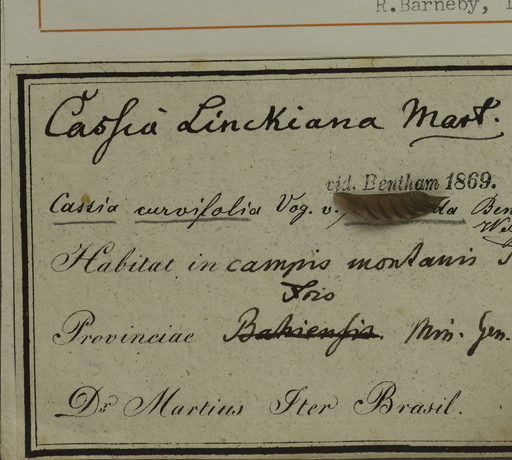 R.Barneby,
Caſsia Linckiana Mart.
vid. Bentham 1869.
Cassia curvifolia Vog. v. da Ben
Habitat in campis montanis
Frio
Provinciae Bahiensis. Min. Gen.
Dr. Martius Iter Brasil.